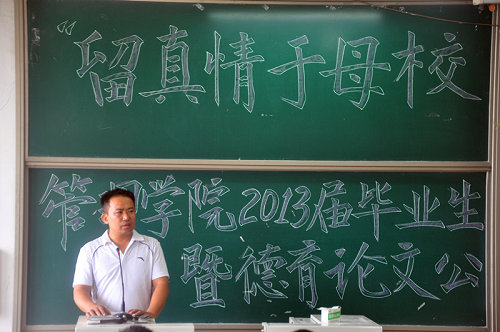 “留真情于母校
管理学院2013届毕业生
暨德育论文公